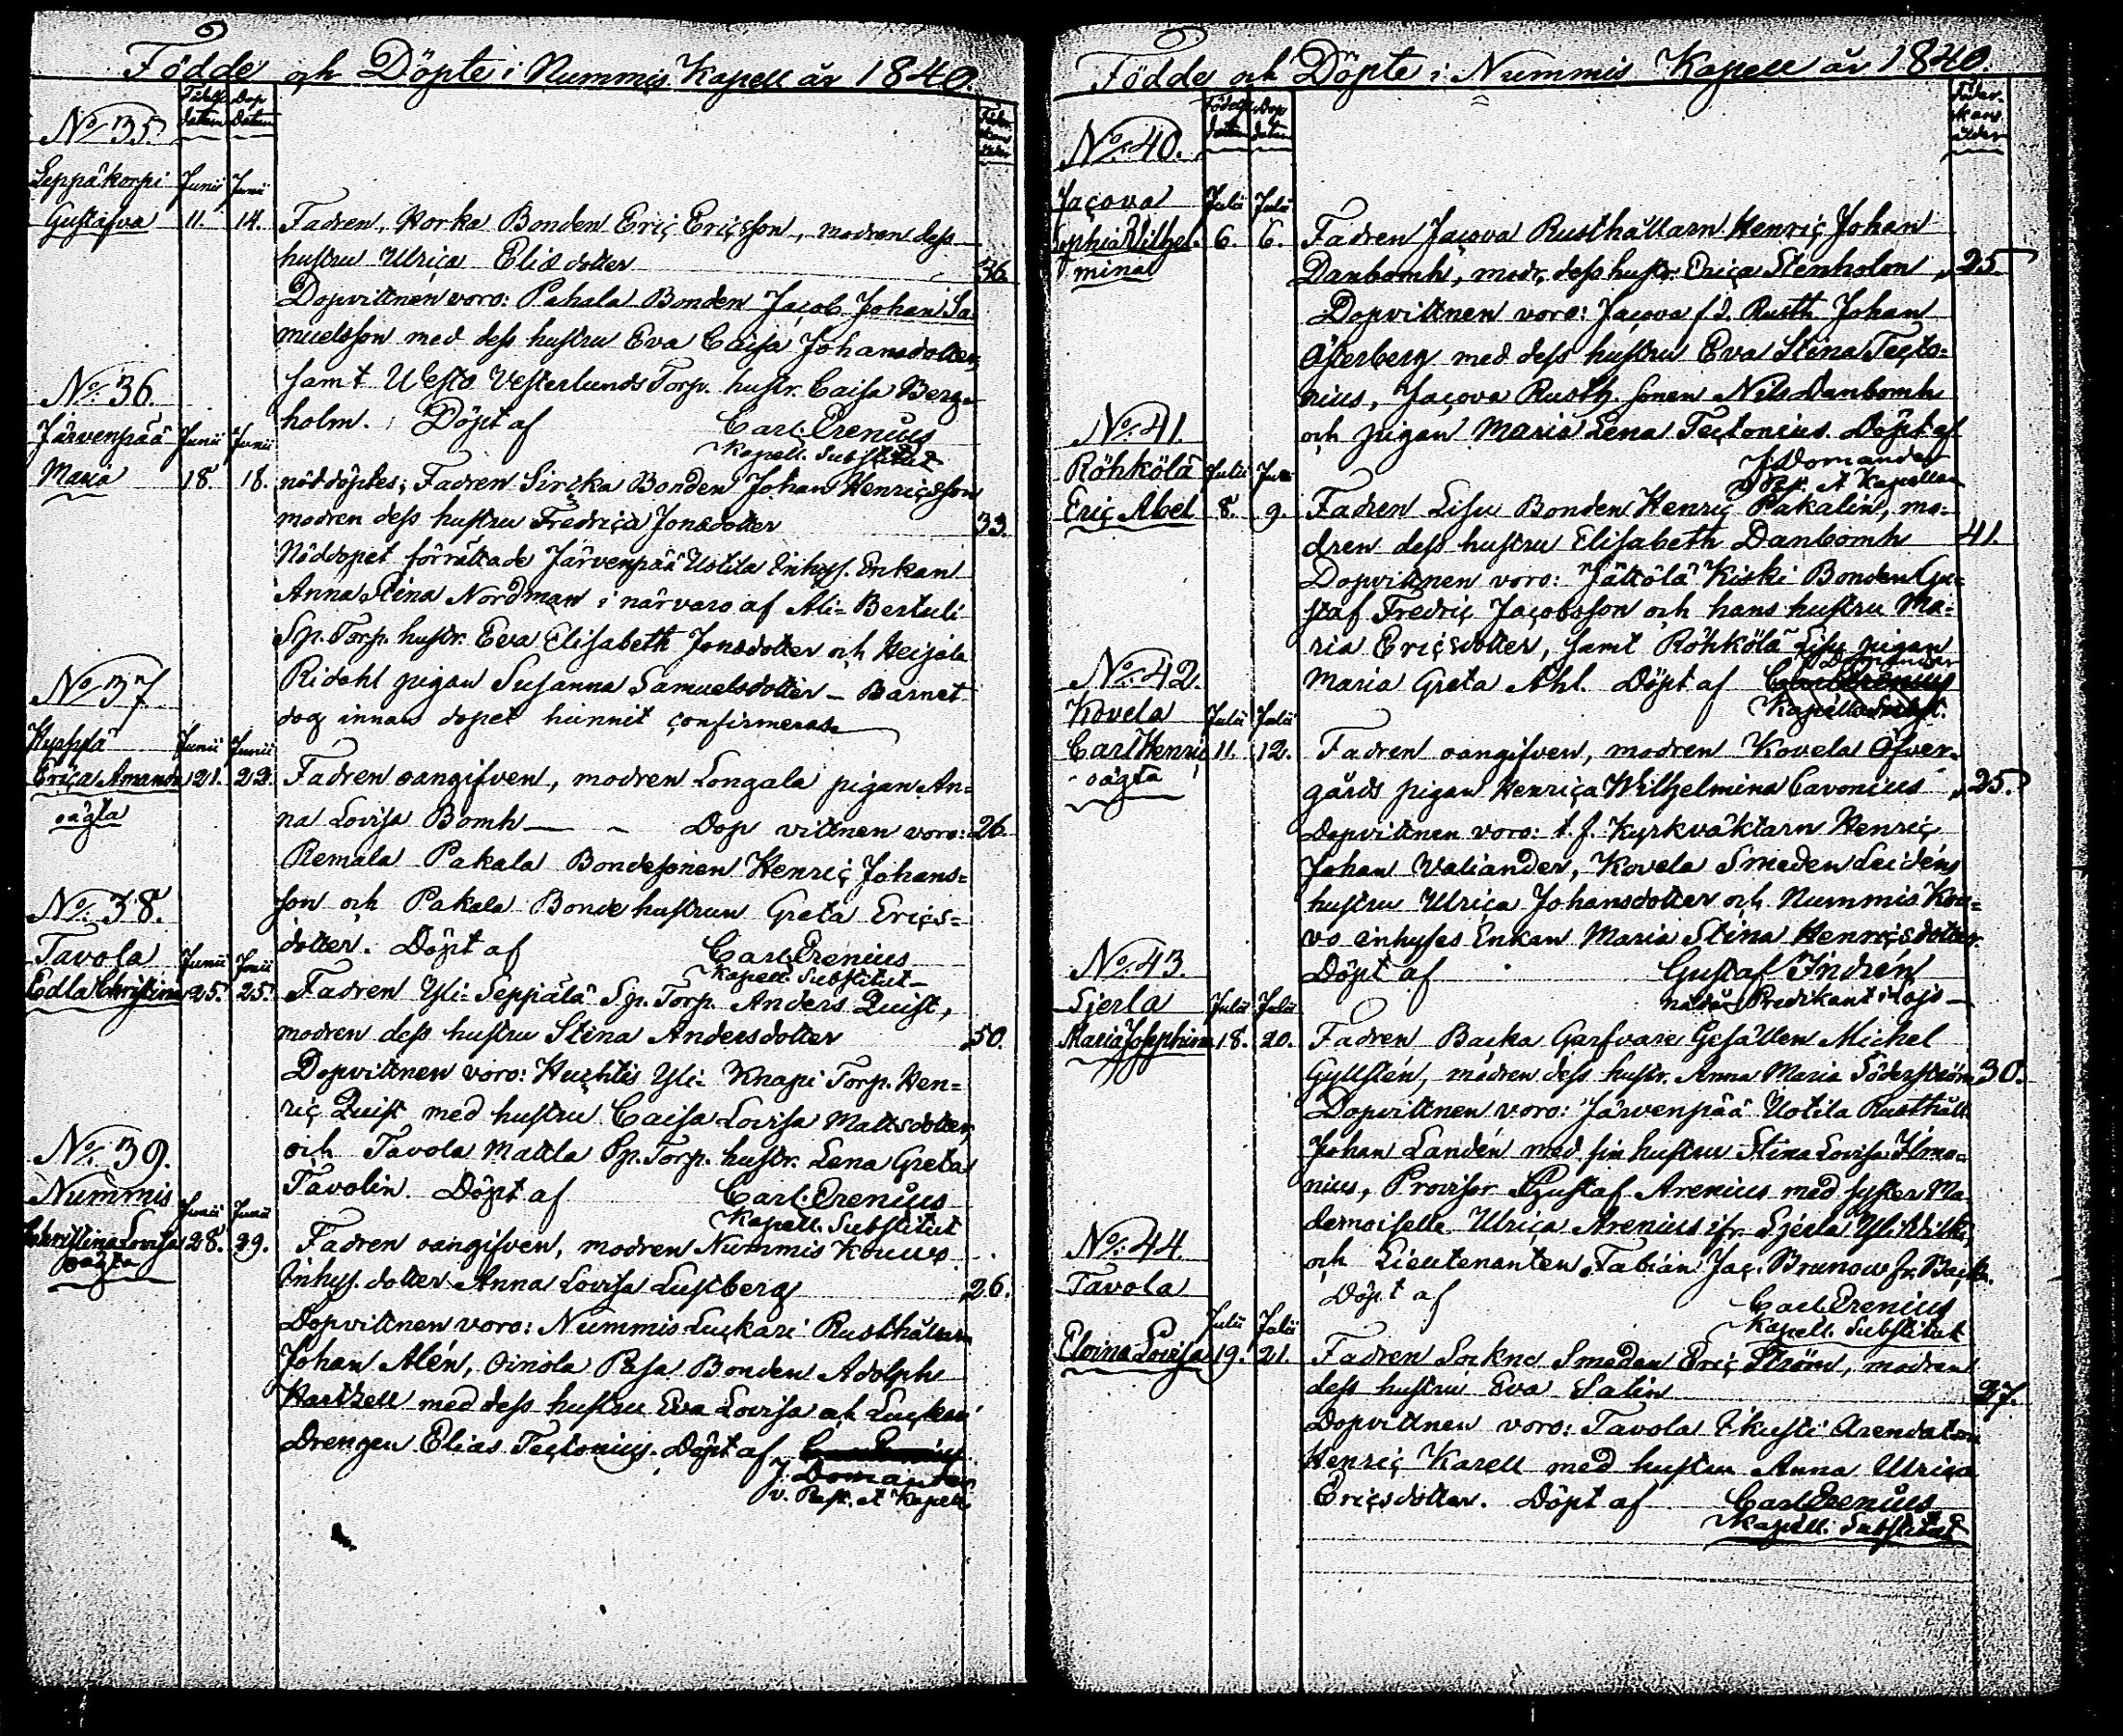 Födde och Döpte i Nummis Kapell år 1840.
Födelse datum Dop datum
Föder- skans ålder
No 35.
Leppäkorpi Junii Junii
Gustafva 11. 14. Fadren, Horka Bonden Eriç Eriçsson, modren dess
hustru Ulriça Eliædotter 36.
Dopvittnen voro: Pahala Bonden Jaçob Johan Sa-
muelsson med dess hustru Eva Caisa Johansdotter,
samt Vesterlunds Torp. hustr. Caisa Berg-
holm. Döpt af Carl Erenius
Kapell. Substitut
No 36.
Järvenpää Junii Junii
Maria 18. 18. nöddöptes; Fadren Sirçka Bonden Johan Henriçsson
modren dess hustru Fredriça Jonædotter 33.
Nöddopet förrättade Järvenpää Uotila Inhys. Enkan
Anna Stina Nordman i närvaro af Ali-Bertuli
Sp. Torp. hustr. Eva Elisabeth Jonædotter och Heijala
Ridahl pigan Susanna Samuelsdotter – Barnet
dog innan dopet hunnit çonfirmeras
No 37
Hyppä Junii Junii
Eriça Amanda 21. 22. Fadren oangifven, modren Longala pigan An-
oägta
na Lovisa Bomh Dop vittnen voro: 26.
Remala Pakala Bondesonen Henriç Johans=
son och Pakala Bonde hustrun Greta Eriçs=
dotter. Döpt af Carl Erenius
Kapell. Substitut
No 38.
Tavola Junii Junii
Edla Christina 25. 25. Fadren Yli-Seppälä Sp. Torp. Anders Quist,
modren dess hustru Stina Andersdotter 50.
Dopvittnen voro: Huçhtis Yli-Knapi Torp. Hen=
riç Quist med hustru Caisa Lovisa Mattsdotter,
och Tavola Mattla Sp. Torp. hustr. Lena Greta
Tavolin. Döpt af Carl Erenius
Kapell. Substitut
No 39.
Nummis Junii Junii
Christina Lovisa 28. 29. Fadren oangifven, modren Nummis Kouvo
oägta
Inhys. dotter Anna Lovisa Lustberg 26.
Dopvittnen voro: Nummis Luçkari Rusthållarn
Johan Alén, Oinola Pæsa Bonden Adolph
Hartzell med dess hustru Eva Lovisa och Luçkari
Drengen Elias Teçtonius. Döpt af
J. Domander
v. Past. et Kapell.
Födde och Döpte i Nummis Kapell år 1840.
Födelse datum Dop datum
Föder- skans ålder
No 40.
Jaçova Julii Julii
Sophia Vilhel- 6. 6. Fadren Jaçova Rusthållarn Henriç Johan
mina
Danbomh, modr. dess hustr. Eriça Stenholm 25.
Dopvittnen voro: Jaçova f.d. Rusth. Johan
Österberg med dess hustru Eva Stina Teçto=
nius, Jaçova Rusth. sonen Nils Danbomh
och pigan Maria Lena Teçtonius. Döpt af
J. Domander
v. Past. et Kapellan
No 41.
Röhkölä Julii Julii
Eriç Abel 8. 9. Fadren Lisu Bonden Henriç Pakalin, mo=
dren dess hustru Elisabeth Danbomh 41.
Dopvittnen voro: Jättölä Kiski Bonden Gu=
staf Fredriç Jaçobsson och hans hustru Ma=
ria Eriçsdotter, samt Röhkölä Lisu pigan
Maria Greta Ahl. Döpt af J. Domander
No 42.
Kovela Julii Julii
Carl Henriç 11. 12. Fadren oangifven, modren Kovela Öfver-
oägta
gårds pigan Henriça Wilhelmina Cavonius 25.
Dopvittnen voro: t.f. Kyrkväktarn Henriç
Johan Valiander, Kovela Smeden Leidéns
hustru Ulriça Johansdotter och Nummis Kou=
vo inhyses Enkan Maria Stina Henriçsdotter.
Döpt af Gustaf Indrén
nådår Predikant i Lojo
No 43.
Sjerla Julii Julii
Maria Josephina 18. 20. Fadren Baçka Garfvare Gesällen Michel
Gyllstén, modren dess hustr. Anna Maria Söderström 30.
Dopvittnen voro: Järvenpää Uotila Rusthåll.
Johan Landén med sin hustru Stina Lovisa Ilmo=
nius, Provisor Gustaf Arenius med syster Ma
demoiselle Ulriça Arenius ifr. Sjerla
och Lieutenanten Fabian Jaç. Brunow fr. Baçka.
Döpt af Carl Erenius
Kapell. Substitut
No 44.
Tavola
Julii Julii
Elvina Lovisa 19. 21. Fadren Sockne Smeden Eriç Ström, modren
dess hustru Eva Salin 37.
Dopvittnen voro: Tavola Ekusti Arendatorn
Henriç Karell med hustru Anna Ulriça
Eriçsdotter. Döpt af Carl Erenius
Kapell. Substitut